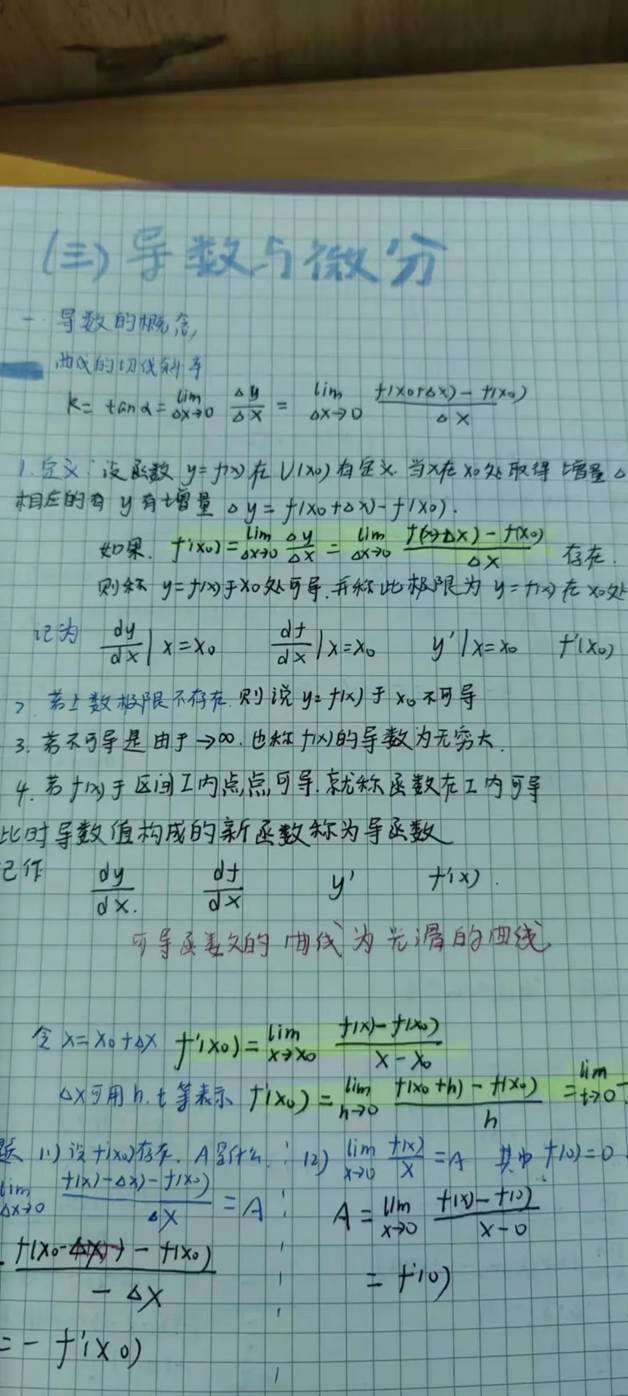 (三)导数与微分
一 导数的概念,
曲线的切线斜率
k = tanα = lim Δx→0 Δy/Δx = lim Δx→0 f(x₀+Δx) - f(x₀)/Δx
1. 定义: 设函数 y=f(x)在U(x₀)有定义. 当x在x₀处取得增量Δ
相应的有 y有增量 Δy = f(x₀+Δx) - f(x₀).
如果. f'(x₀) = lim Δx→0 Δy/Δx = lim Δx→0 f(x+Δx) - f(x₀)/Δx 存在.
则称 y=f(x)于x₀处可导. 并称此极限为 y=f(x)在x₀处
记为 dy/dx | x=x₀ df/dx | x=x₀ y' | x=x₀ f'(x₀)
2 若上数极限不存在. 则说 y=f(x)于 x₀ 不可导
3. 若不可导是由于→∞. 也称f(x)的导数为无穷大.
4. 若 f(x)于区间I内点点可导. 就称函数在I内可导
此时导数值构成的新函数称为导函数
记作 dy/dx. df/dx y' f'(x).
可导函数的曲线为光滑的曲线
令 x=x₀+Δx f'(x₀) = lim x→x₀ f(x) - f(x₀)/x - x₀
Δx可用h.t等表示 f'(x₀) = lim h→0 f(x₀+h) - f(x₀)/h = lim t→0
题 (1) 设f'(x₀)存在. A是什么 (2) lim x→0 f(x)/x = A 其中 f(0)=0
lim Δx→0 f(x)-Δx) - f(x₀)/Δx = A A = lim x→0 f(x) - f(0)/x-0
f(x₀-Δx) - f(x₀)/-Δx = f'(0)
= - f'(x₀)